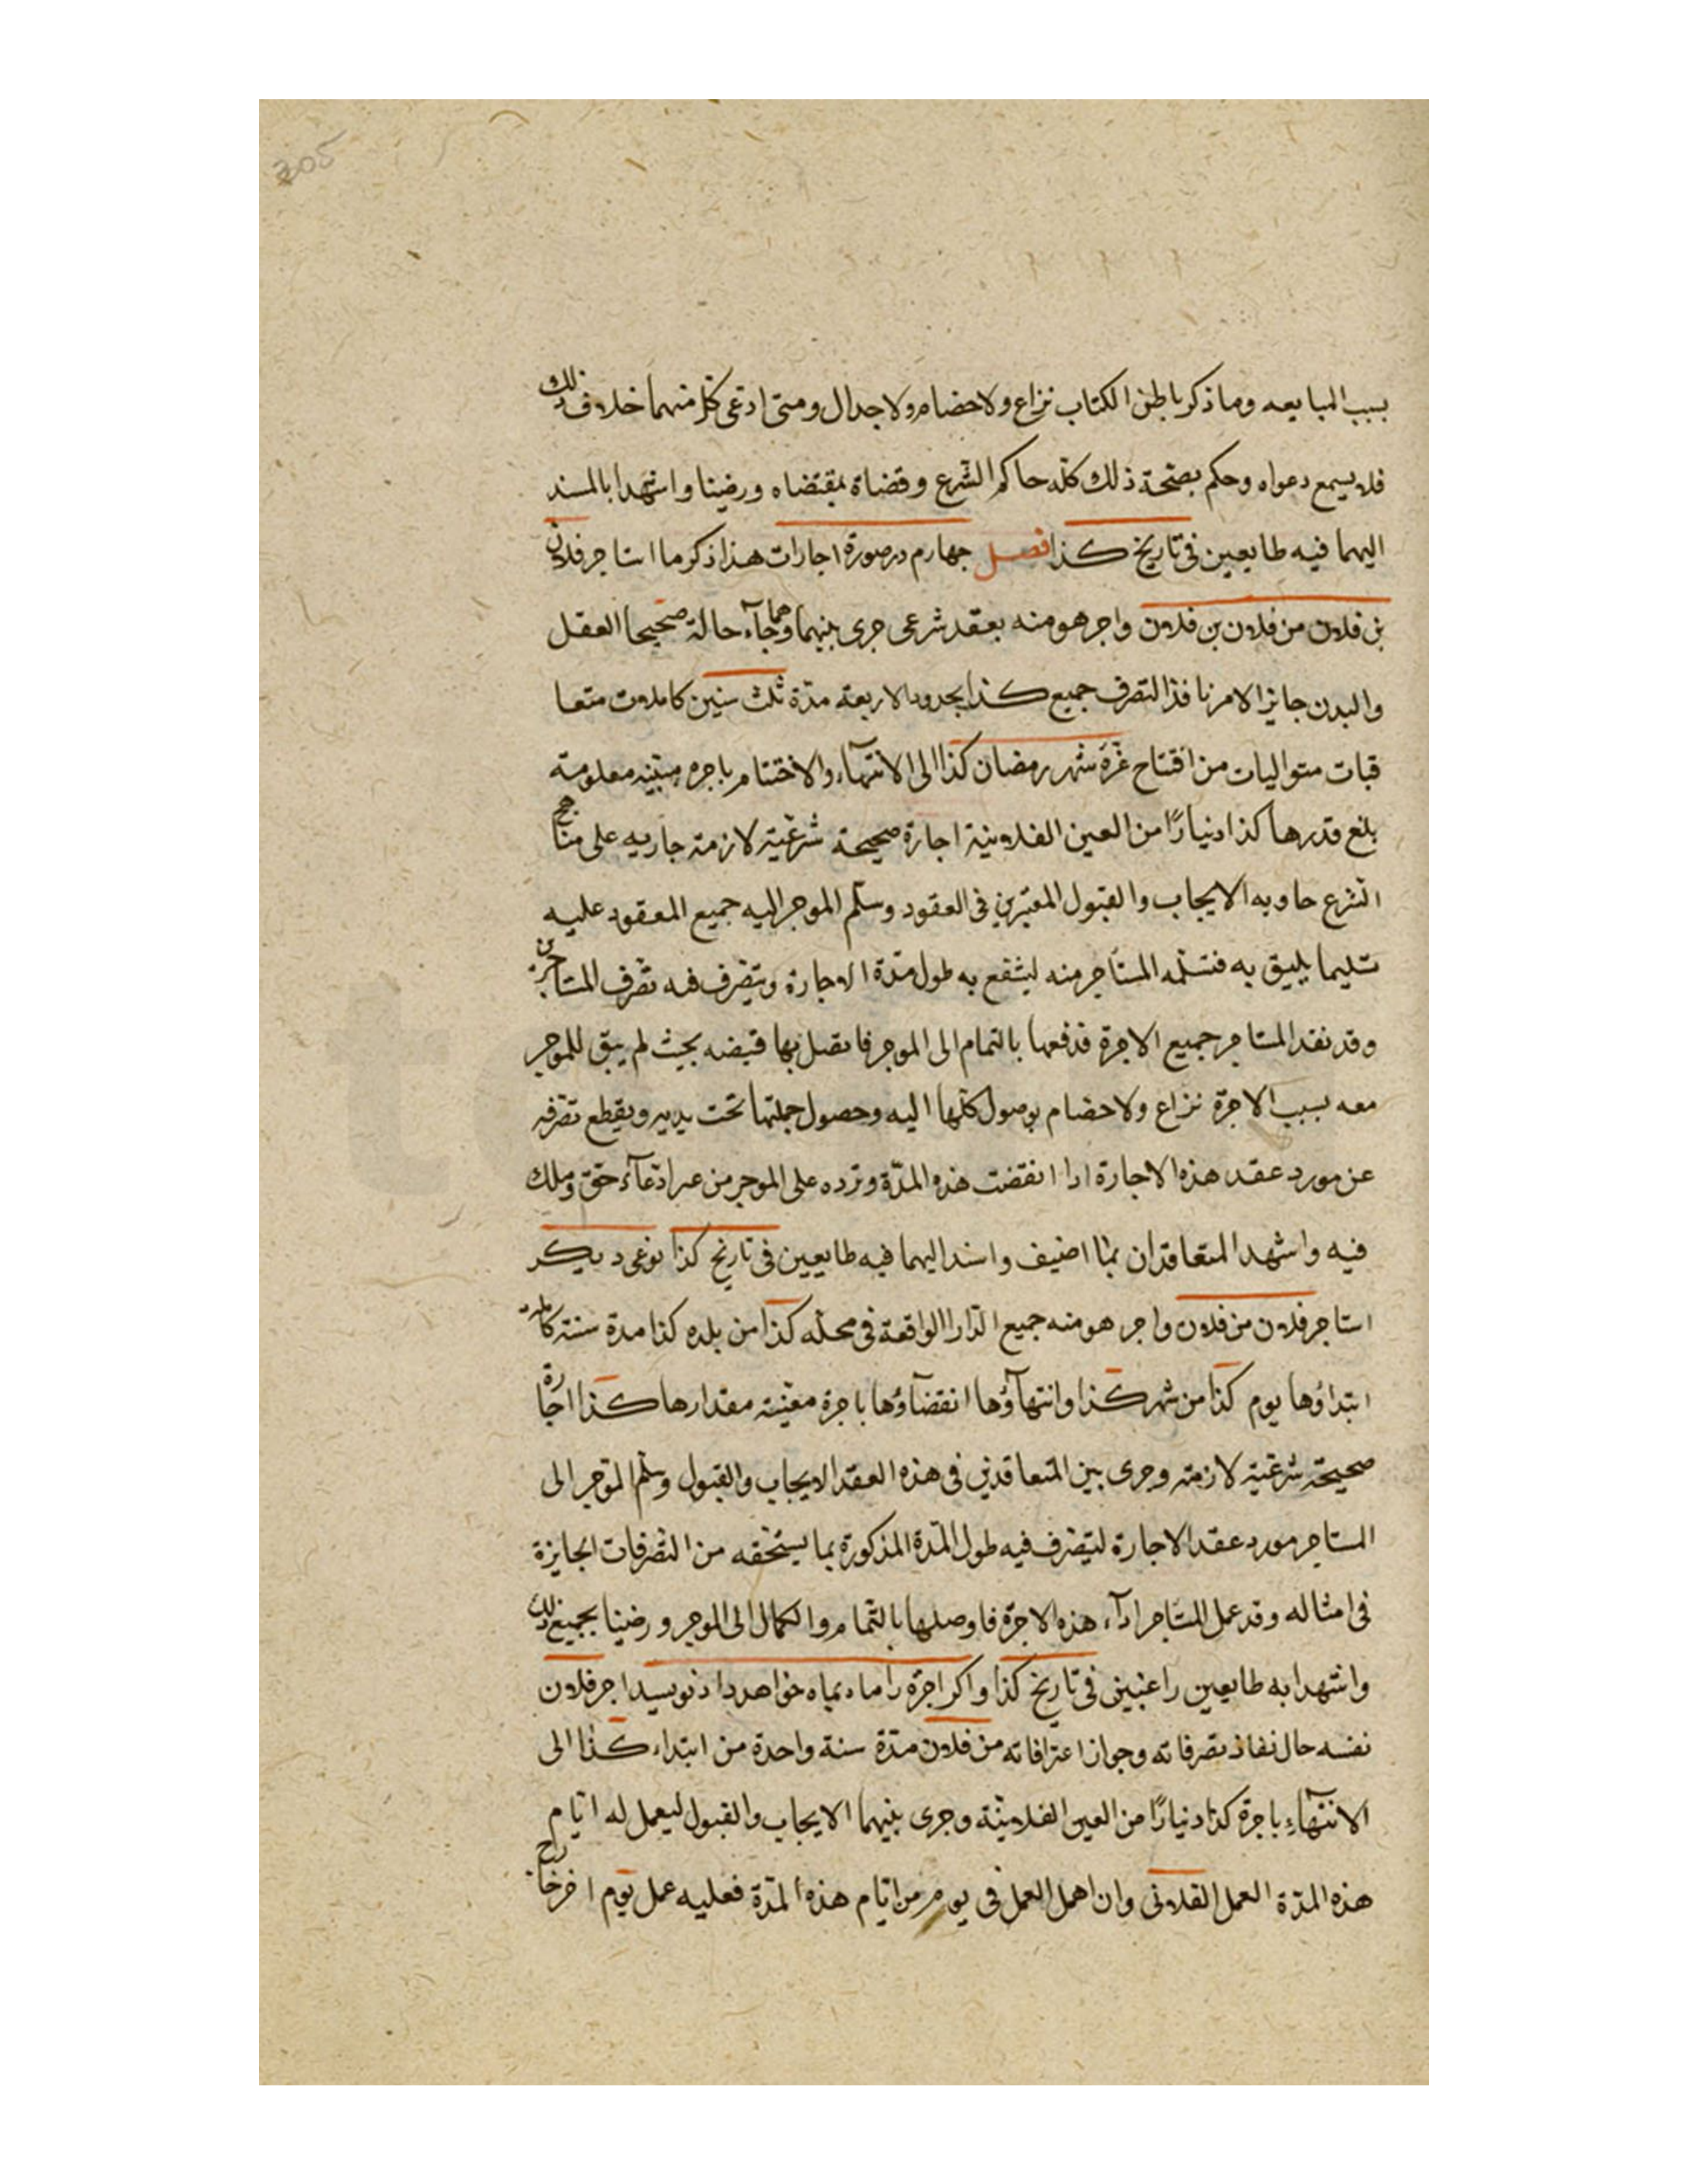 305
بسبب المبايعه وما ذكر باطن الكتاب نزاع ولا خصام ولا جدال ومتى ادعى كل منهما خلاف ذلك
فلا يسمع دعواه وحكم بصحة ذلك كله حاكم الشرع وقضاة بمقتضاه ورضينا واشهدا بالمسند
اليهما فيه طايعين فى تاريخ كذا فصل چهارم در صورة اجارات هذا ذكر ما استاجر فلان
بن فلان من فلان بن فلان واجر هو منه بعقد شرعى جرى بينهما وهما جآء حالة صحيحا العقل
والبدن جايز الامر نافذ التصرف جميع كذا بحدوده الاربعة مدّة ثلث سنين كاملات متعا
قبات متواليات من افتتاح غرّة شهر رمضان كذا الى الانتهآء والاختتام باجره مبيّنه معلومة
بلغ قدرها كذا دنيارًا من العين الفلانية اجارة صحيحة شرعيّة لازمة جاريه على مناهج
الشرع حاويه الايجاب والقبول المعتبرين فى العقود وسلّم الموجر اليه جميع المعقود عليه
تسليما يليق به فتسلّمه المستاجر منه لينتفع به طول مدّة الاجارة ويتصرف فيه تصرّف المستاجرين
وقد نقد المستاجر جميع الاجرة فدفعها بالتمام الى الموجر فا تقبل بها قبضه بحيث لم يبق للموجر
معه بسبب الاجرة نزاع ولا خصام بوصول كلّها اليه وحصول جملتها تحت يديه ويقطع تصرّفه
عن مورد عقد هذه الاجارة اذا انقضت هذه المدّة وترده على الموجر من غير ادّعآء حقّ وملك
فيه واشهد المتعاقدان بما اضيف واسند اليهما فيه طايعين فى تاريخ كذا نوعى ديكر
استاجر فلان من فلان واجر هو منه جميع الدّار الواقعة فى محلّه كذا من بلده كذا مدة سنة كاملة
ابتداؤها يوم كذا من شهر كذا وانتهآؤها انقضآؤها باجرة معيّنة مقدارها كذا اجارة
صحيحة شرعيّة لازمة وجرى بين المتعاقدين فى هذه العقد الايجاب والقبول وسلّم الموجر الى
المستاجر مورد عقد الاجارة ليتصرف فيه طول المدّة المذكورة بما يستحقه من التصرفات الجايزة
فى امثاله وقد عمل المستاجر ادآء هذه الاجرة فاوصلها بالتمام والكمال الى الموجر ورضينا بجميع ذلك
واشهدا به طايعين راغبين فى تاريخ كذا واكر اجرة را ماه بماه خواهد داد نويسد اجر فلان
نفسه حال نفاذ تصرفاته وجواز اعترافاته من فلان مدّة سنة واحدة من ابتداء كذا الى
الانتهآء باجرة كذا دنيارًا من العين الفلانيّة وجرى بينهما الايجاب والقبول ليعمل له ايّام
هذه المدّة العمل الفلانى وان اهمل العمل فى يوم من ايّام هذه المدّة فعليه عمل يوم اخر خارج